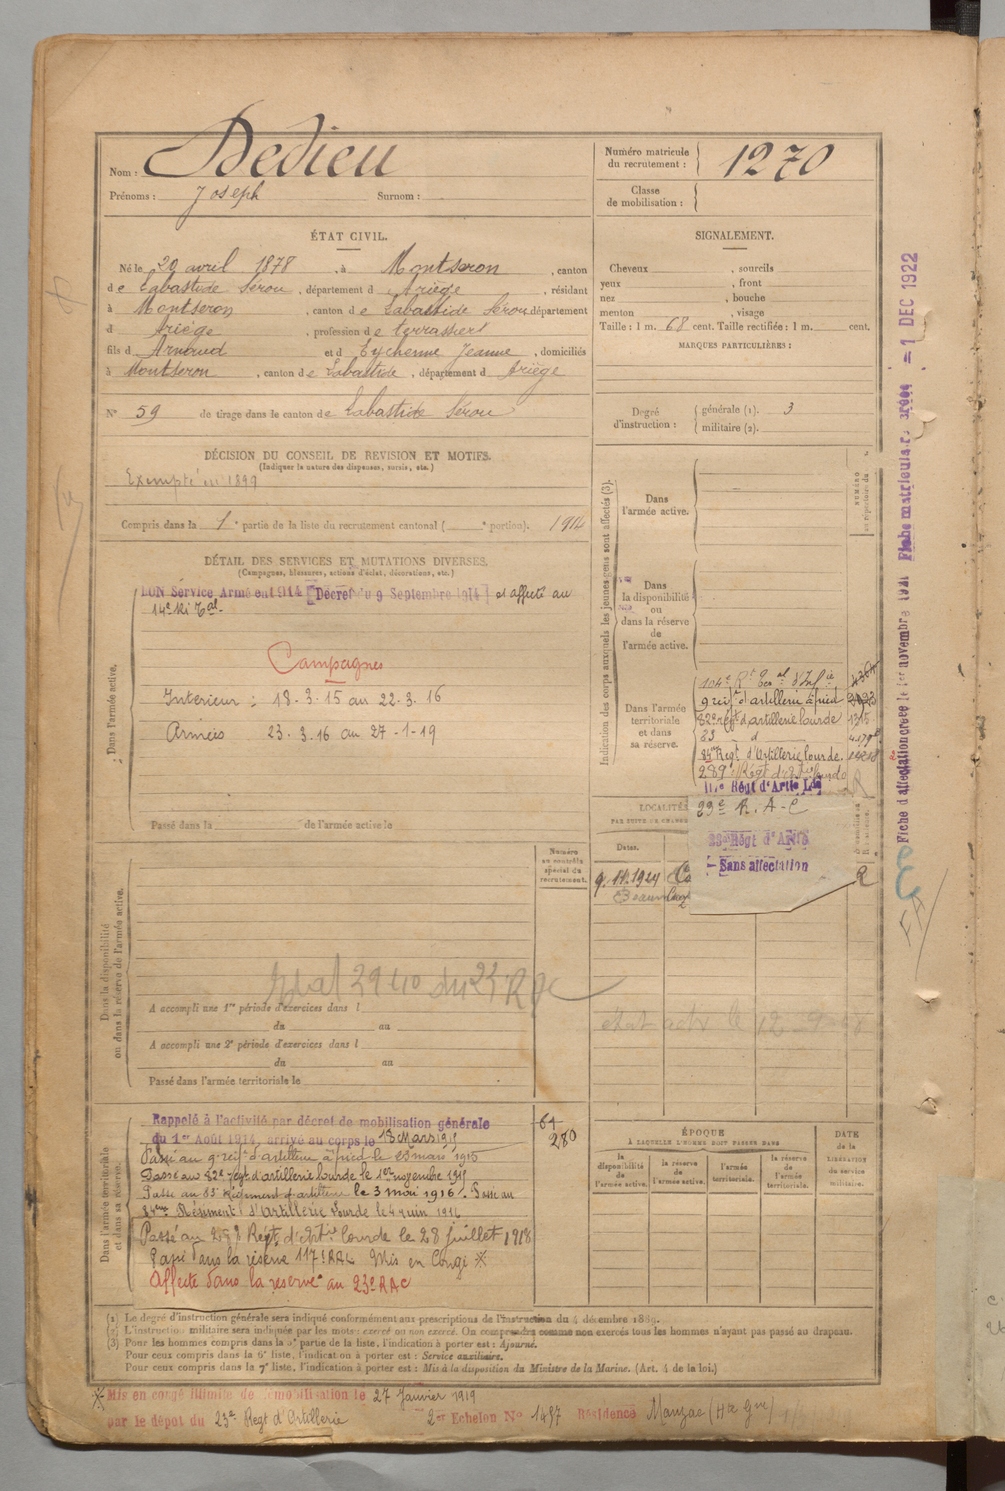 Nom : Dedieu
Prénoms : Joseph Surnom :
Numéro matricule
du recrutement : 1270
Classe
de mobilisation :
ÉTAT CIVIL.
Né le 29 avril 1878, à Montseron, canton
de Labastide Sérou, département d Ariège, résidant
à Montseron, canton de Labastide Sérou département
d Ariège, profession de terrassier
fils d Arnaud et d Eychenne Jeanne, domiciliés
à Montseron, canton de Labastide, département d Ariège
N° 59 de tirage dans le canton de Labastide Sérou
SIGNALEMENT.
Cheveux , sourcils
yeux , front
nez , bouche
menton , visage
Taille : 1 m. 68 cent. Taille rectifiée : 1 m. cent.
MARQUES PARTICULIÈRES :
Degré
d'instruction :
générale (1). 3
militaire (2).
DÉCISION DU CONSEIL DE REVISION ET MOTIFS.
(Indiquer la nature des dispenses, sursis, etc.)
Exempté en 1899
Compris dans la 1e partie de la liste du recrutement cantonal ( e portion). 1914
DÉTAIL DES SERVICES ET MUTATIONS DIVERSES.
(Campagnes, blessures, actions d'éclat, décorations, etc.)
BON Service Armé en 1914 [Décret du 9 Septembre 1914] et affecté au
Dans l'armée active.
Campagnes
Intérieur : 18-3-15 au 22-3-16
Armées 23-3-16 au 27-1-19
Passé dans la de l'armée active le
Indication des corps auxquels les jeunes gens sont affectés (3).
Dans
l'armée active.
Dans
la disponibilité
ou
dans la réserve
de
l'armée active.
Dans l'armée
territoriale
et dans
sa réserve.
9 regt d'artillerie à pied
82e regt d'artillerie lourde
83 d
84me Regt d'Artillerie lourde.
289e Régt d'Artie lourde
117e Régt d'Artie Lde
23e R.A.C
23e Régt d'Artie
Sans affectation
NUMÉRO
LOCALITÉS
Dates.
9.11.1924
R
Fiche d'affectation créée le 1er novembre 1921 Fiche matricule créée = 1 DEC 1922
Dans la disponibilité
ou dans la réserve de l'armée active.
Numéro
au contrôle
spécial du
recrutement.
A accompli une 1re période d'exercices dans l
du au
A accompli une 2e période d'exercices dans l
du au
Passé dans l'armée territoriale le
Dans l'armée territoriale
et dans sa réserve.
Rappelé à l'activité par décret de mobilisation générale
du 1er Août 1914, arrivé au corps le 18 Mars 1915
Passé au 9 regt d'artillerie à pied le 23 mars 1915
Passé au 82e regt d'artillerie lourde le 1er novembre 1915
Passé au 83e Régiment d'artillerie le 3 mai 1916. Passé au
84me Régiment d'Artillerie Lourde le 4 juin 1916
Passé au 289 Regt d'Artie lourde le 28 juillet 1918
Passé dans la réserve 117e RAL Mis en Congé ※
Affecté dans la réserve au 23e RAC
61
280
ÉPOQUE
À LAQUELLE L'HOMME DOIT PASSER DANS
la
disponibilité
de
l'armée active.
la réserve
de
l'armée active.
l'armée
territoriale.
la réserve
de
l'armée
territoriale.
DATE
de la
LIBÉRATION
du service
militaire.
(1) Le degré d'instruction générale sera indiqué conformément aux prescriptions de l'instruction du 4 décembre 1889.
(2) L'instruction militaire sera indiquée par les mots : exercé ou non exercé. On comprendra comme non exercés tous les hommes n'ayant pas passé au drapeau.
(3) Pour les hommes compris dans la 2e partie de la liste, l'indication à porter est : Ajourné.
Pour ceux compris dans la 6e liste, l'indication à porter est : Service auxiliaire.
Pour ceux compris dans la 7e liste, l'indication à porter est : Mis à la disposition du Ministre de la Marine. (Art. 4 de la loi.)
※ Mis en congé illimité de démobilisation le 27 Janvier 1919
par le dépôt du 23e Regt d'Artillerie 2er Echelon No 1497 Résidence Mauzac (Hte Gne)